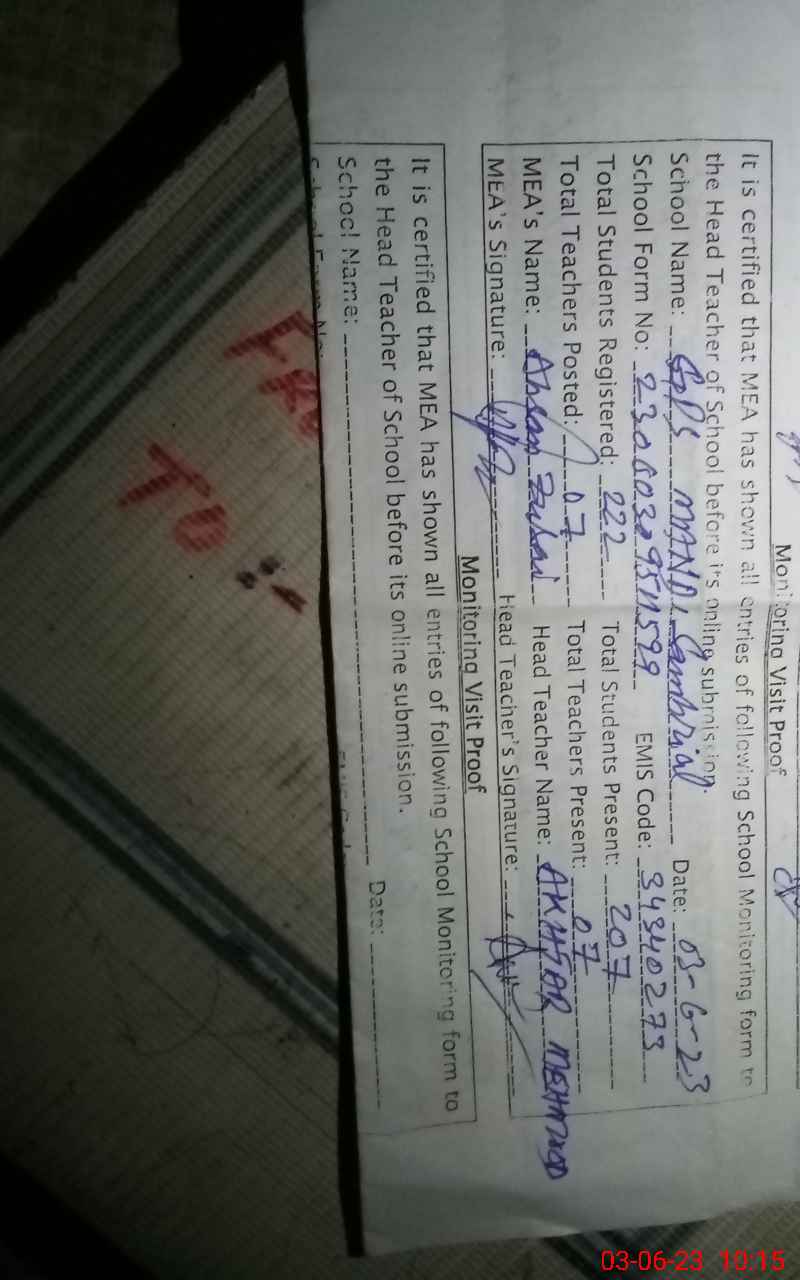 Monitoring Visit Proof
It is certified that MEA has shown all entries of following School Monitoring form to
the Head Teacher of School before its online submission.
School Name: GPS MANDI Sambrial Date: 03-6-23
School Form No: EMIS Code: 34340273
Total Students Registered: 222 Total Students Present: 207
Total Teachers Posted: 07 Total Teachers Present: 07
MEA's Name: Ahsan Head Teacher Name: AKHTAR MEHMOOD
MEA's Signature: Head Teacher's Signature:
Monitoring Visit Proof
It is certified that MEA has shown all entries of following School Monitoring form to
the Head Teacher of School before its online submission.
School Name: Date:
TO :-
03-06-23 10:15